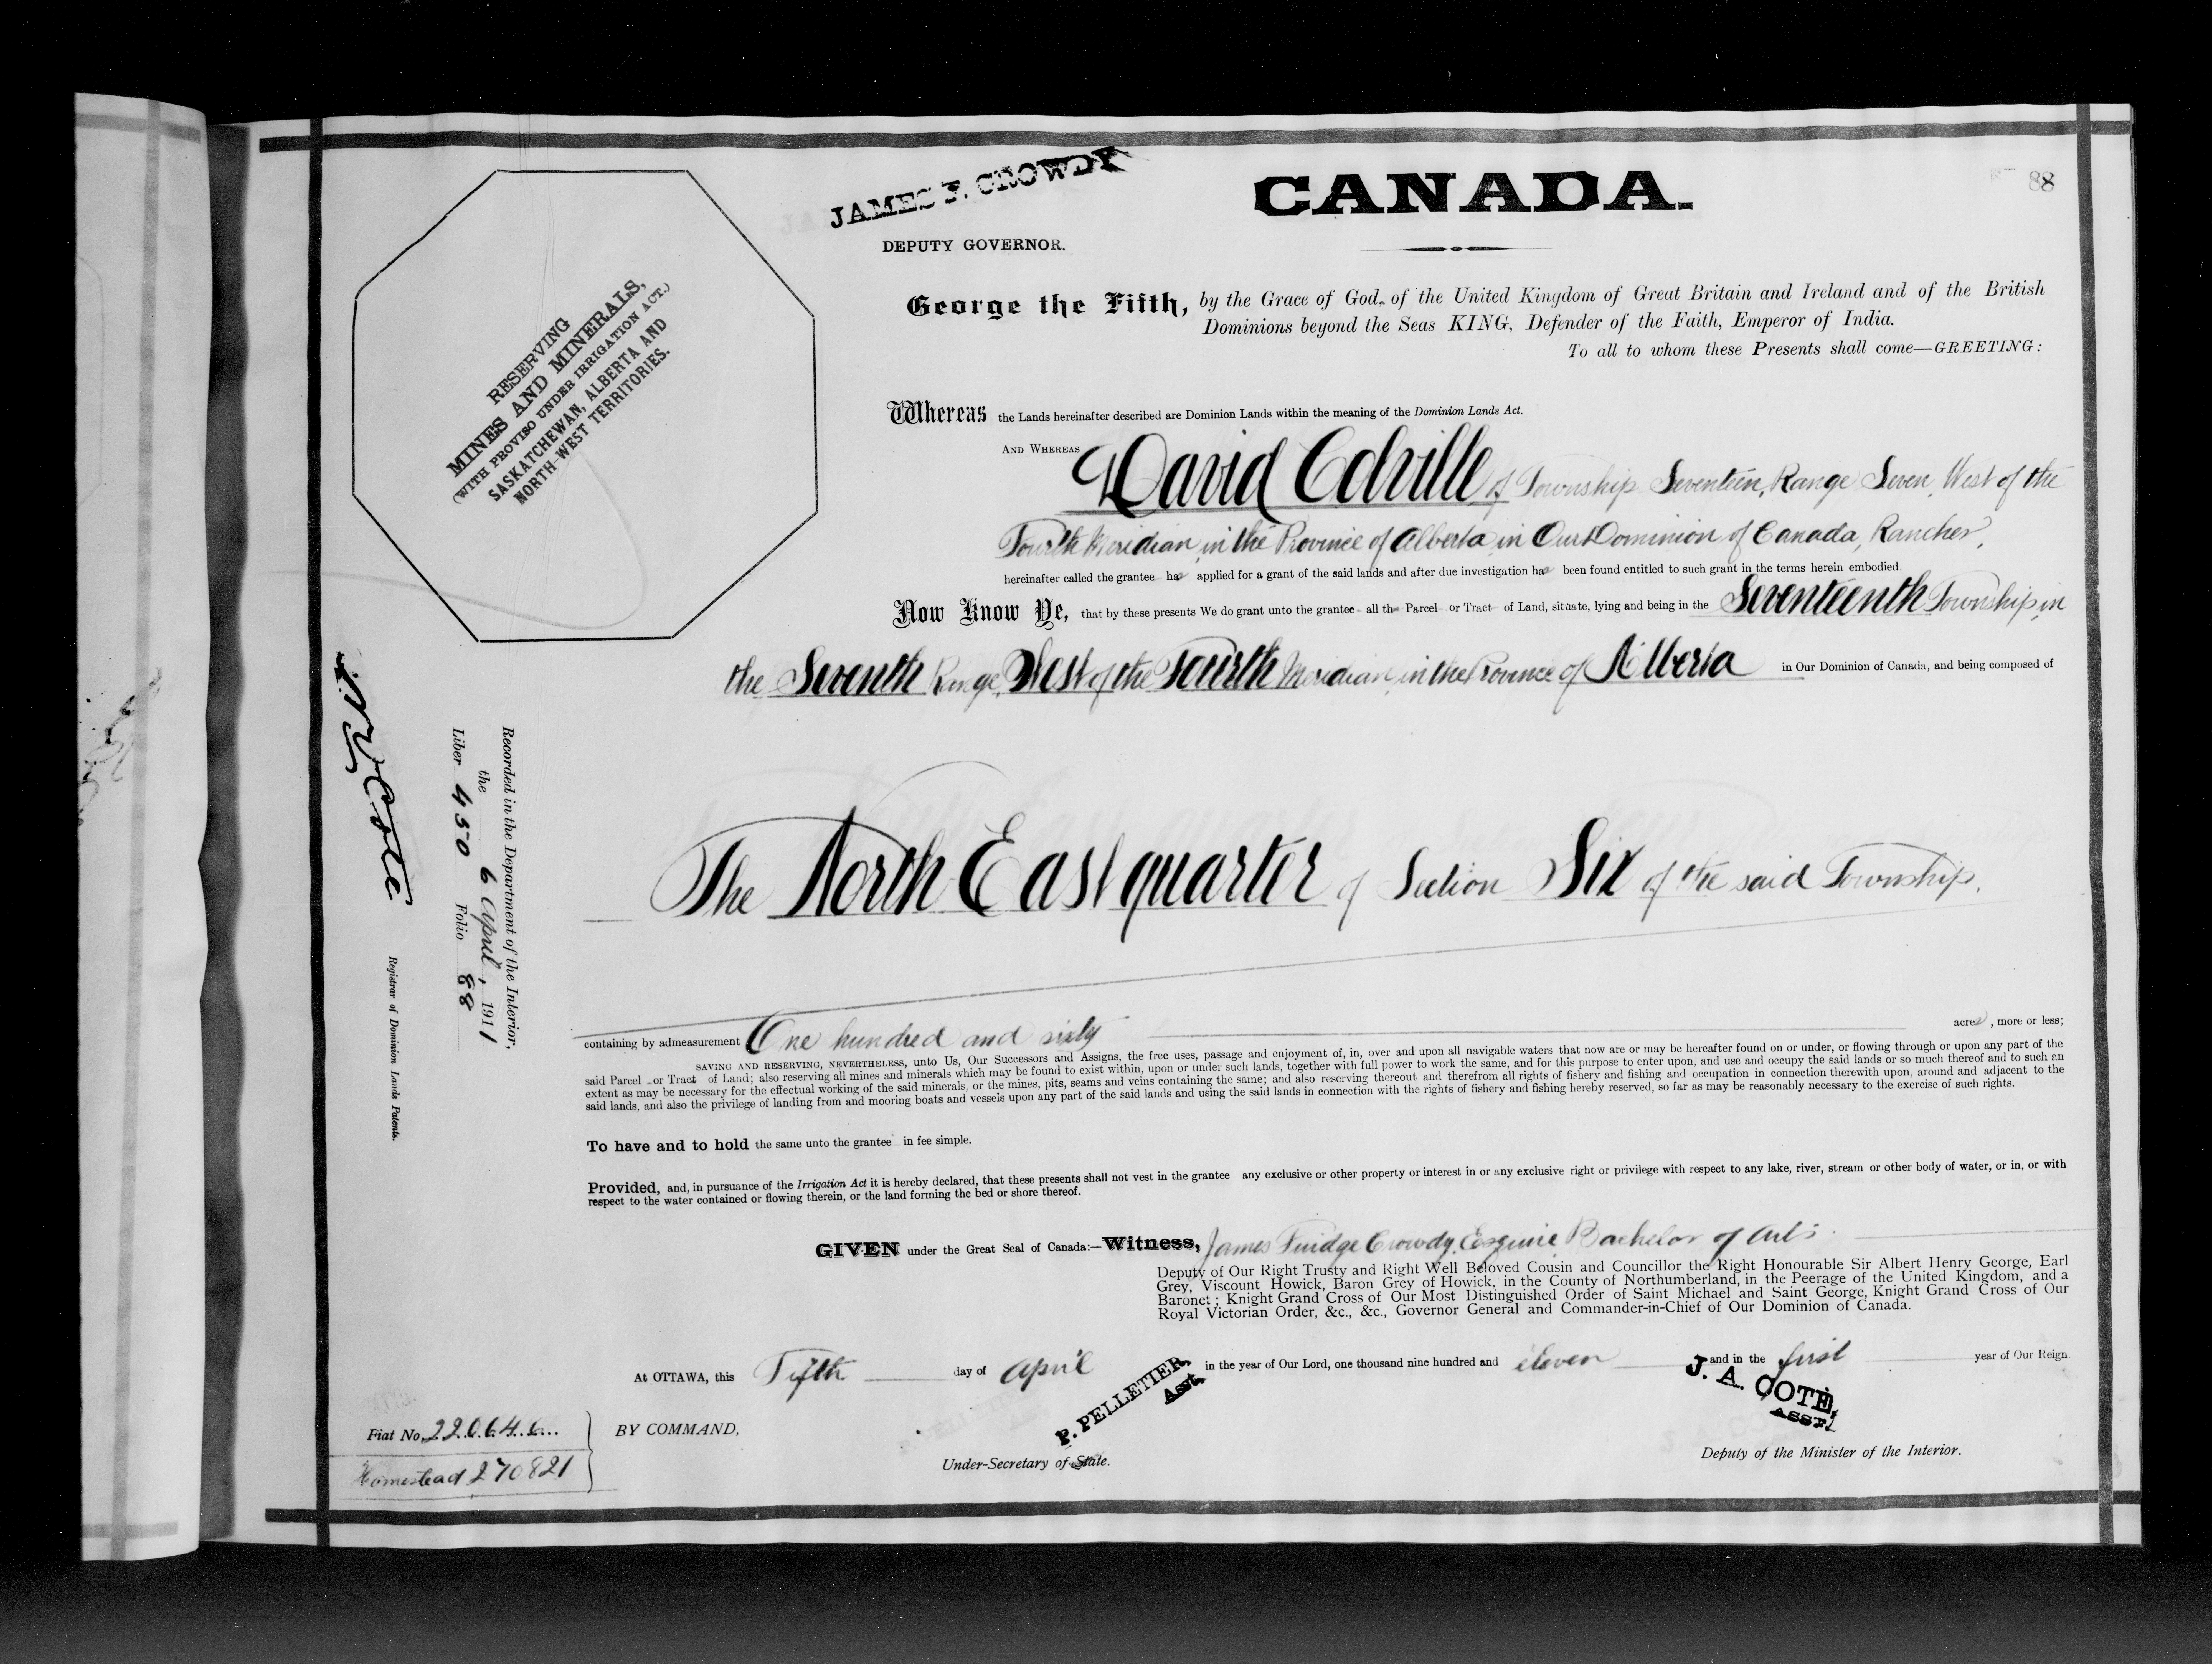 88
JAMES F. CROWDY
DEPUTY GOVERNOR.
CANADA.
RESERVING
MINES AND MINERALS,
(WITH PROVISO UNDER IRRIGATION ACT.)
SASKATCHEWAN, ALBERTA AND
NORTH-WEST TERRITORIES.
George the Fifth, by the Grace of God, of the United Kingdom of Great Britain and Ireland and of the British
Dominions beyond the Seas KING, Defender of the Faith, Emperor of India.
To all to whom these Presents shall come—GREETING:
Whereas the Lands hereinafter described are Dominion Lands within the meaning of the Dominion Lands Act.
AND WHEREAS David Colville of Township Seventeen, Range Seven, West of the
Fourth Meridian, in the Province of Alberta, in Our Dominion of Canada, Rancher,
hereinafter called the grantee has applied for a grant of the said lands and after due investigation has been found entitled to such grant in the terms herein embodied.
Now Know Ye, that by these presents We do grant unto the grantee all that Parcel or Tract of Land, situate, lying and being in the Seventeenth Township, in
the Seventh Range, West of the Fourth Meridian, in the Province of Alberta in Our Dominion of Canada, and being composed of
The North East quarter of Section Six of the said Township.
containing by admeasurement One hundred and sixty acres, more or less;
SAVING AND RESERVING, NEVERTHELESS, unto Us, Our Successors and Assigns, the free uses, passage and enjoyment of, in, over and upon all navigable waters that now are or may be hereafter found on or under, or flowing through or upon any part of the
said Parcel or Tract of Land; also reserving all mines and minerals which may be found to exist within, upon or under such lands, together with full power to work the same, and for this purpose to enter upon, and use and occupy the said lands or so much thereof and to such an
extent as may be necessary for the effectual working of the said minerals, or the mines, pits, seams and veins containing the same; and also reserving thereout and therefrom all rights of fishery and fishing and occupation in connection therewith upon, around and adjacent to the
said lands, and also the privilege of landing from and mooring boats and vessels upon any part of the said lands and using the said lands in connection with the rights of fishery and fishing hereby reserved, so far as may be reasonably necessary to the exercise of such rights.
To have and to hold the same unto the grantee in fee simple.
Provided, and, in pursuance of the Irrigation Act it is hereby declared, that these presents shall not vest in the grantee any exclusive or other property or interest in or any exclusive right or privilege with respect to any lake, river, stream or other body of water, or in, or with
respect to the water contained or flowing therein, or the land forming the bed or shore thereof.
GIVEN under the Great Seal of Canada:—Witness, James Fuidge Crowdy, Esquire, Bachelor of Arts
Deputy of Our Right Trusty and Right Well Beloved Cousin and Councillor the Right Honourable Sir Albert Henry George, Earl
Grey, Viscount Howick, Baron Grey of Howick, in the County of Northumberland, in the Peerage of the United Kingdom, and a
Baronet; Knight Grand Cross of Our Most Distinguished Order of Saint Michael and Saint George, Knight Grand Cross of Our
Royal Victorian Order, &c., &c., Governor General and Commander-in-Chief of Our Dominion of Canada.
At OTTAWA, this Fifth day of April in the year of Our Lord, one thousand nine hundred and eleven and in the first year of Our Reign
BY COMMAND,
P. PELLETIER,
Asst.
Under-Secretary of State.
J. A. COTÉ,
ASST.
Deputy of the Minister of the Interior.
Fiat No. 220646
Homestead 270821
Recorded in the Department of the Interior,
the 6 April, 1911
Liber 450 Folio 88
Coté
Registrar of Dominion Lands Patents.